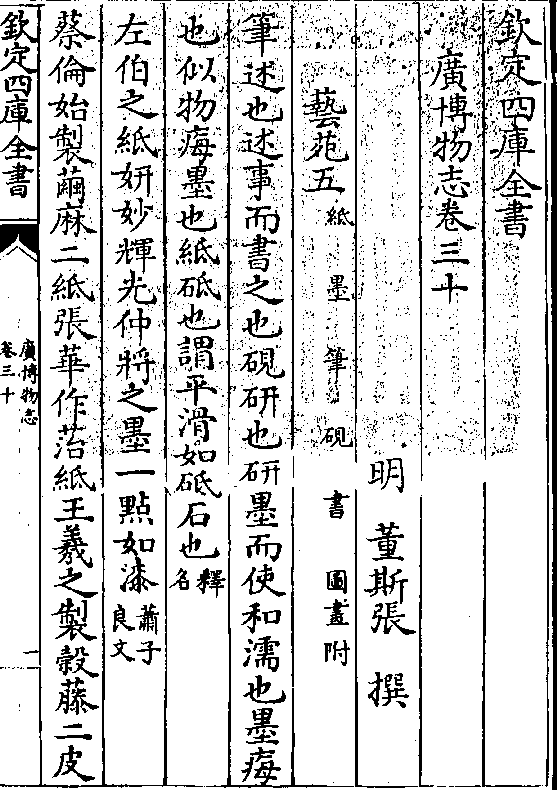 欽定四庫全書
廣博物志卷三十
明 董斯張 撰
藝苑五 紙 墨 筆 硯 書 圖畫附
筆述也述事而書之也硯研也研墨而使和濡也墨痗
也似物痗墨也紙砥也謂平滑如砥石也釋名
左伯之紙妍妙輝光仲將之墨一點如漆蕭子良文
蔡倫始製繭麻二紙張華作苔紙王羲之製榖藤二皮
欽定四庫全書
廣博物志
卷三十
一